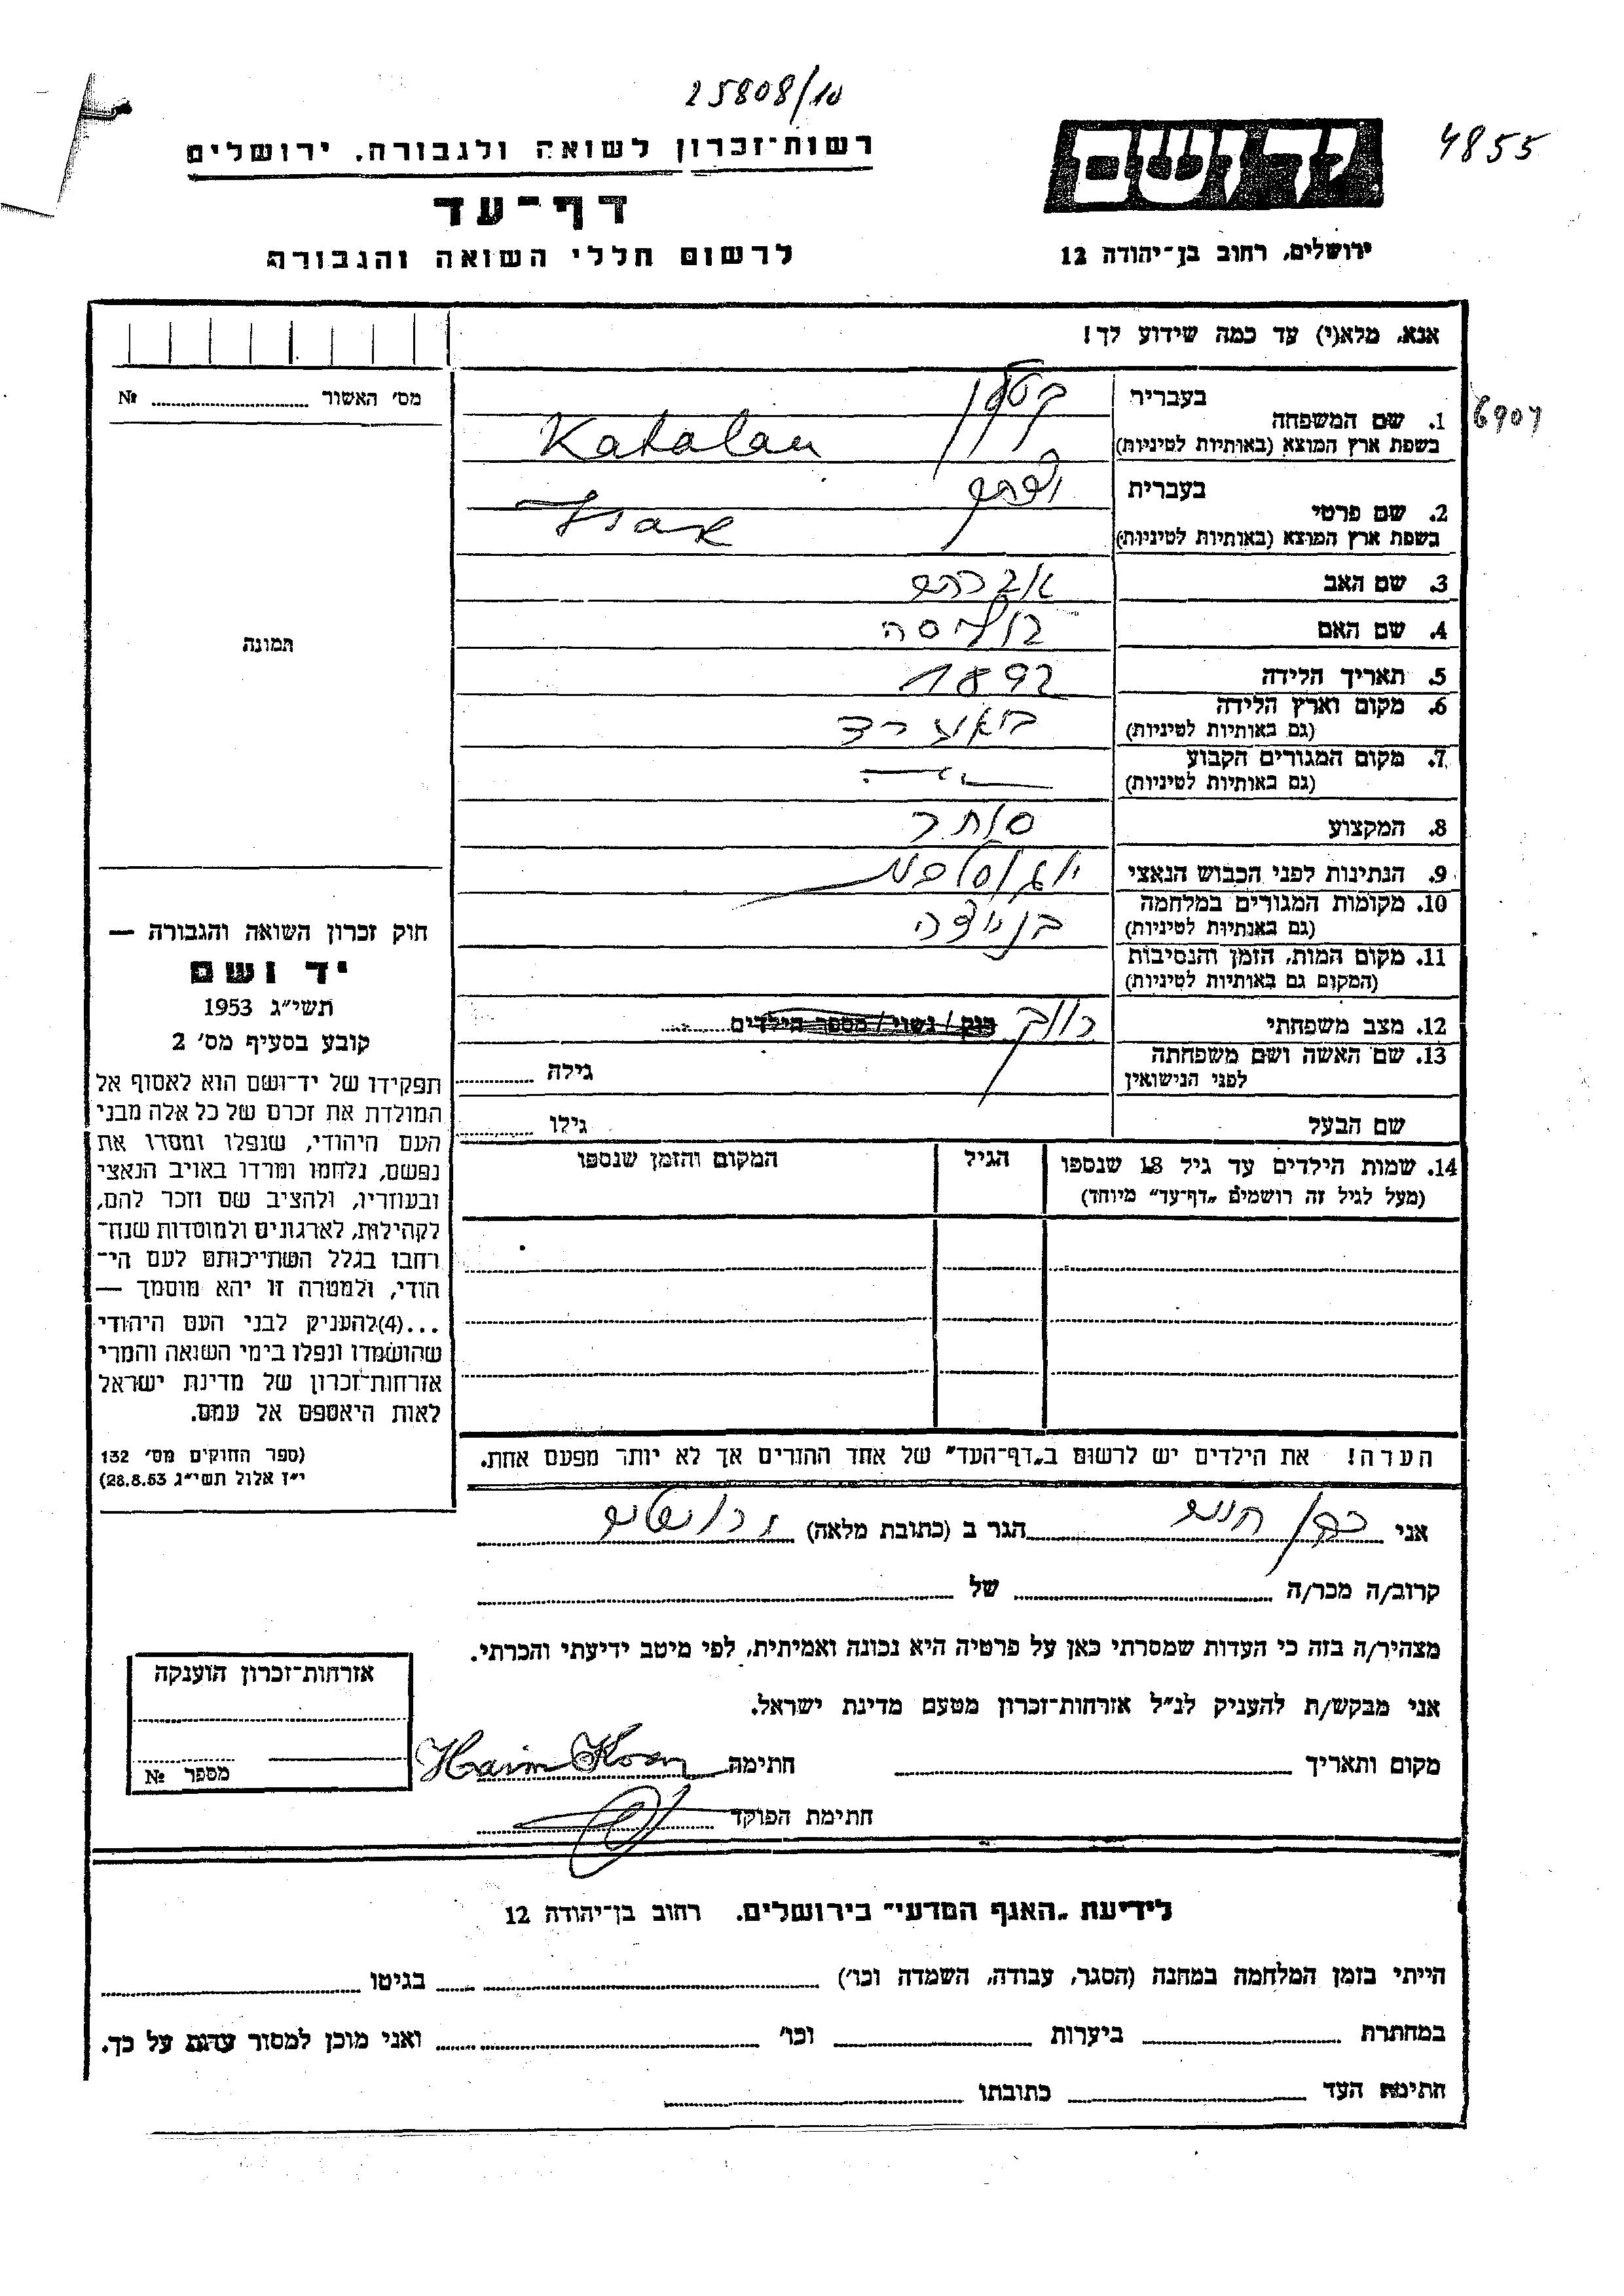 25808/10
4855
רשות־זכרון לשואה ולגבורה, ירושלים
יד ושם
דף־עד
לרשום חללי השואה והגבורה
ירושלים, רחוב בן־יהודה 12
אנא, מלא(י) עד כמה שידוע לך!
מס׳ האשור № 
1. שם המשפחה
בעברית קטלן
בשפת ארץ המוצא (באותיות לטיניות) Katalan
6907
2. שם פרטי
בעברית יצחק
בשפת ארץ המוצא (באותיות לטיניות) Isak
3. שם האב אברהם
4. שם האם
5. תאריך הלידה 1892
6. מקום וארץ הלידה
(גם באותיות לטיניות)
7. מקום המגורים הקבוע
(גם באותיות לטיניות)
8. המקצוע סוחר
9. הנתינות לפני הכבוש הנאצי
10. מקומות המגורים במלחמה
(גם באותיות לטיניות)
11. מקום המות, הזמן והנסיבות
(המקום גם באותיות לטיניות)
12. מצב משפחתי רווק רוק / נשוי / מספר הילדים
13. שם האשה ושם משפחתה
לפני הנישואין
גילה
שם הבעל גילו
14. שמות הילדים עד גיל 18 שנספו
(מעל לגיל זה רושמים „דף־עד" מיוחד)
הגיל
המקום והזמן שנספו
הערה! את הילדים יש לרשום ב„דף־העד" של אחד ההורים אך לא יותר מפעם אחת.
תמונה
חוק זכרון השואה והגבורה —
יד ושם
תשי"ג 1953
קובע בסעיף מס׳ 2
תפקידו של יד־ושם הוא לאסוף אל
המולדת את זכרם של כל אלה מבני
העם היהודי, שנפלו ומסרו את
נפשם, נלחמו ומרדו באויב הנאצי
ובעוזריו, ולהציב שם וזכר להם,
לקהילות, לארגונים ולמוסדות שנח־
רחבו בגלל השתייכותם לעם הי־
הודי, ולמטרה זו יהא מוסמך —
...(4)להעניק לבני העם היהודי
שהושמדו ונפלו בימי השואה והמרי
אזרחות־זכרון של מדינת ישראל
לאות היאספם אל עמם.
(ספר החוקים מס׳ 132
י"ז אלול תשי"ג 28.8.53)
אני כהן חיים הגר ב (כתובת מלאה) ירושלים
קרוב/ה מכר/ה של
מצהיר/ה בזה כי העדות שמסרתי כאן על פרטיה היא נכונה ואמיתית, לפי מיטב ידיעתי והכרתי.
אני מבקש/ת להעניק לנ"ל אזרחות־זכרון מטעם מדינת ישראל.
מקום ותאריך חתימה Haim Koen
חתימת הפוקד
אזרחות־זכרון הוענקה
מספר №
לידיעת „האגף המדעי" בירושלים, רחוב בן־יהודה 12
הייתי בזמן המלחמה במחנה (הסגר, עבודה, השמדה וכו׳) בגיטו
במחתרת ביערות וכו׳ ואני מוכן למסור עדות על כך.
חתימת העד כתובתו